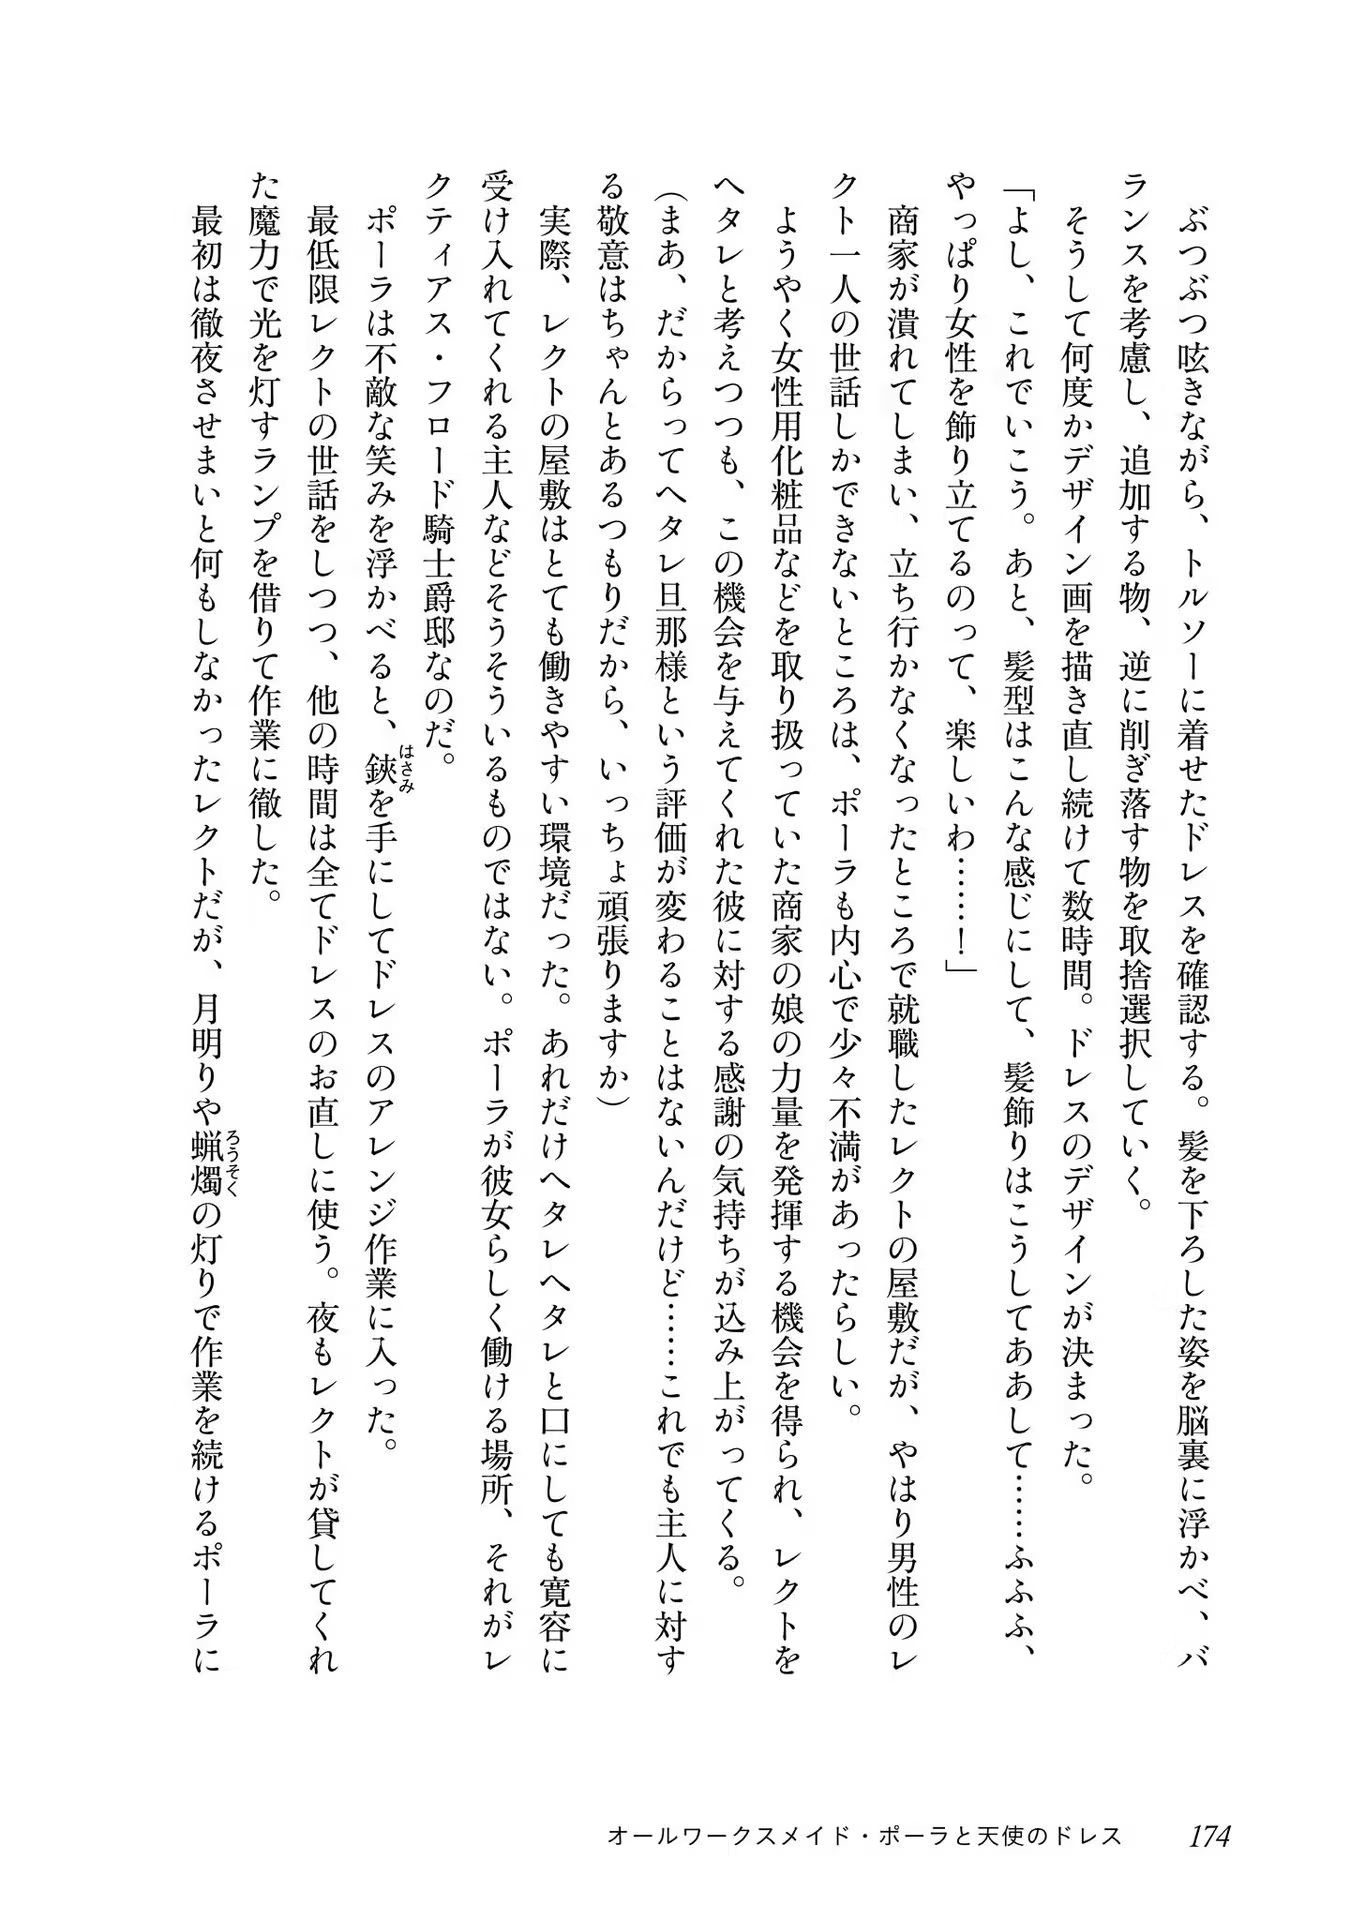 ぶつぶつ呟きながら、トルソーに着せたドレスを確認する。髪を下ろした姿を脳裏に浮かべ、バ
ランスを考慮し、追加する物、逆に削ぎ落す物を取捨選択していく。
そうして何度かデザイン画を描き直し続けて数時間。ドレスのデザインが決まった。
「よし、これでいこう。あと、髪型はこんな感じにして、髪飾りはこうしてああして……ふふふ、
やっぱり女性を飾り立てるのって、楽しいわ……！」
商家が潰れてしまい、立ち行かなくなったところで就職したレクトの屋敷だが、やはり男性のレ
クト一人の世話しかできないところは、ポーラも内心で少々不満があったらしい。
ようやく女性用化粧品などを取り扱っていた商家の娘の力量を発揮する機会を得られ、レクトを
ヘタレと考えつつも、この機会を与えてくれた彼に対する感謝の気持ちが込み上がってくる。
（まあ、だからってヘタレ旦那様という評価が変わることはないんだけど……これでも主人に対す
る敬意はちゃんとあるつもりだから、いっちょ頑張りますか）
実際、レクトの屋敷はとても働きやすい環境だった。あれだけヘタレヘタレと口にしても寛容に
受け入れてくれる主人などそうそういるものではない。ポーラが彼女らしく働ける場所、それがレ
クティアス・フロード騎士爵邸なのだ。
ポーラは不敵な笑みを浮かべると、鋏はさみを手にしてドレスのアレンジ作業に入った。
最低限レクトの世話をしつつ、他の時間は全てドレスのお直しに使う。夜もレクトが貸してくれ
た魔力で光を灯すランプを借りて作業に徹した。
最初は徹夜させまいと何もしなかったレクトだが、月明りや蝋燭ろうそくの灯りで作業を続けるポーラに
オールワークスメイド・ポーラと天使のドレス 174